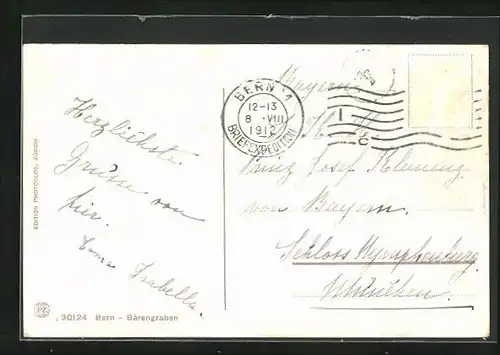 Herzlichste
Grüsse von
hier.
Isabella.
EDITION PHOTOGLOB, ZÜRICH
PZ
30124 Bern - Bärengraben
BERN 1
12-13
8 VIII
1912
BRIEFEXPEDITION
Bayern
Prinz Josef Klemenz
von Bayern.
Schloss Nymphenburg
München.